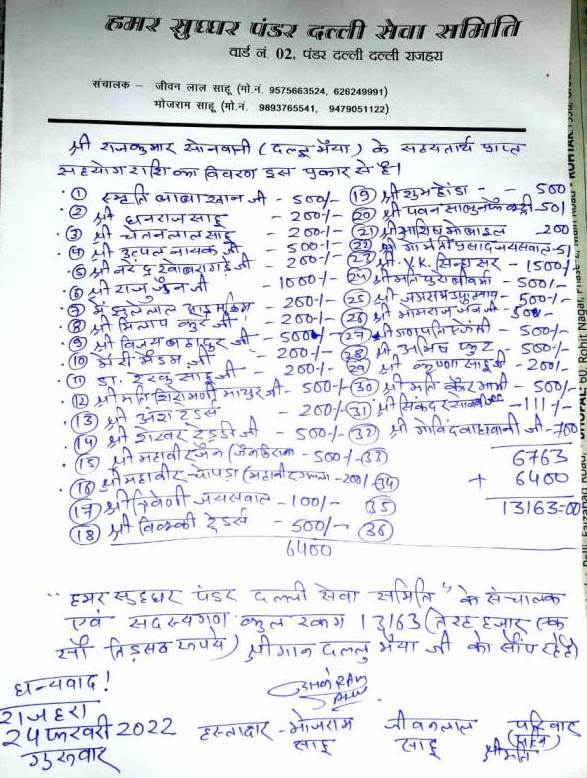 हमर सुघ्घर पंडर दल्ली सेवा समिति
वार्ड नं. 02, पंडर दल्ली दल्ली राजहरा
संचालक – जीवन लाल साहू (मो.नं. 9575663524, 626249991)
भोजराम साहू (मो.नं. 9893765541, 9479051122)
श्री राजकुमार सोनवानी (दल्लू भैया) के सहयतार्थ प्राप्त
सहयोग राशि का विवरण इस प्रकार से है।
① स्मृति बाबा खान जी - 500/-
② श्री धनराज साहू - 200/-
③ श्री चेतनलाल साहू - 200/-
④ श्री उत्पल नायक जी - 500/-
⑤ श्री नरेन्द्र खोबरागड़े जी - 200/-
⑥ श्री राजू जैन जी - 1000/-
⑦ में झुलेलाल - 200/-
⑧ श्री मिलाप जी - 200/-
⑨ श्री विजय बहादुर जी - 500/-
⑩ मेरी मैडम जी - 200/-
⑪ डा. देरहू साहू जी - 200/-
⑫ श्रीमति शिरोमणी माथुर जी - 500/-
⑬ श्री अंश ट्रेडर्स - 200/-
⑭ श्री शेखर रेड्डी जी - 500/-
⑮ श्री महावीर जैन - 500/-
⑯ श्री महावीर चोपड़ा - 200/-
⑰ श्री त्रिवेणी जयसवाल - 100/-
⑱ श्री विक्की ट्रेडर्स - 500/-
6400
⑲ श्री शुभ होंडा - - 500
⑳ श्री पवन - 501
㉑ श्री आशिष मोबाइल 200
㉒ श्री गोमती प्रसाद जयसवाल - 51
㉓ श्री V.K. सिन्हा सर - 1500/-
㉔ श्रीमति वर्मा - 500/-
㉕ श्री - 500/-
㉖ श्री मोमराज जैन - 500/-
㉗ श्री गणपति एजेंसी - 500/-
㉘ श्री अभिषेक फ्रुट - 500/-
㉙ श्री कृष्णा साहू जी - 200/-
㉚ श्रीमति कौर मामी - 500/-
㉛ श्री सिकंदर - 111/-
㉜ श्री गोविंद वाधवानी जी - 700
㉝ 6763
㉞ + 6400
㉟ 13163=00
㊱
"हमर सुघ्घर पंडर दल्ली सेवा समिति" के संचालक
एवं सदस्यगण कुल रकम 13163 (तेरह हजार एक
सौ तिरसठ रूपये) श्रीमान दल्लु भैया जी को सौंप रहे है।
धन्यवाद!
राजहरा
24 फरवरी 2022
गुरूवार
हस्ताक्षर - भोजराम साहू
जीवनलाल साहू
परिवार
श्रीमति